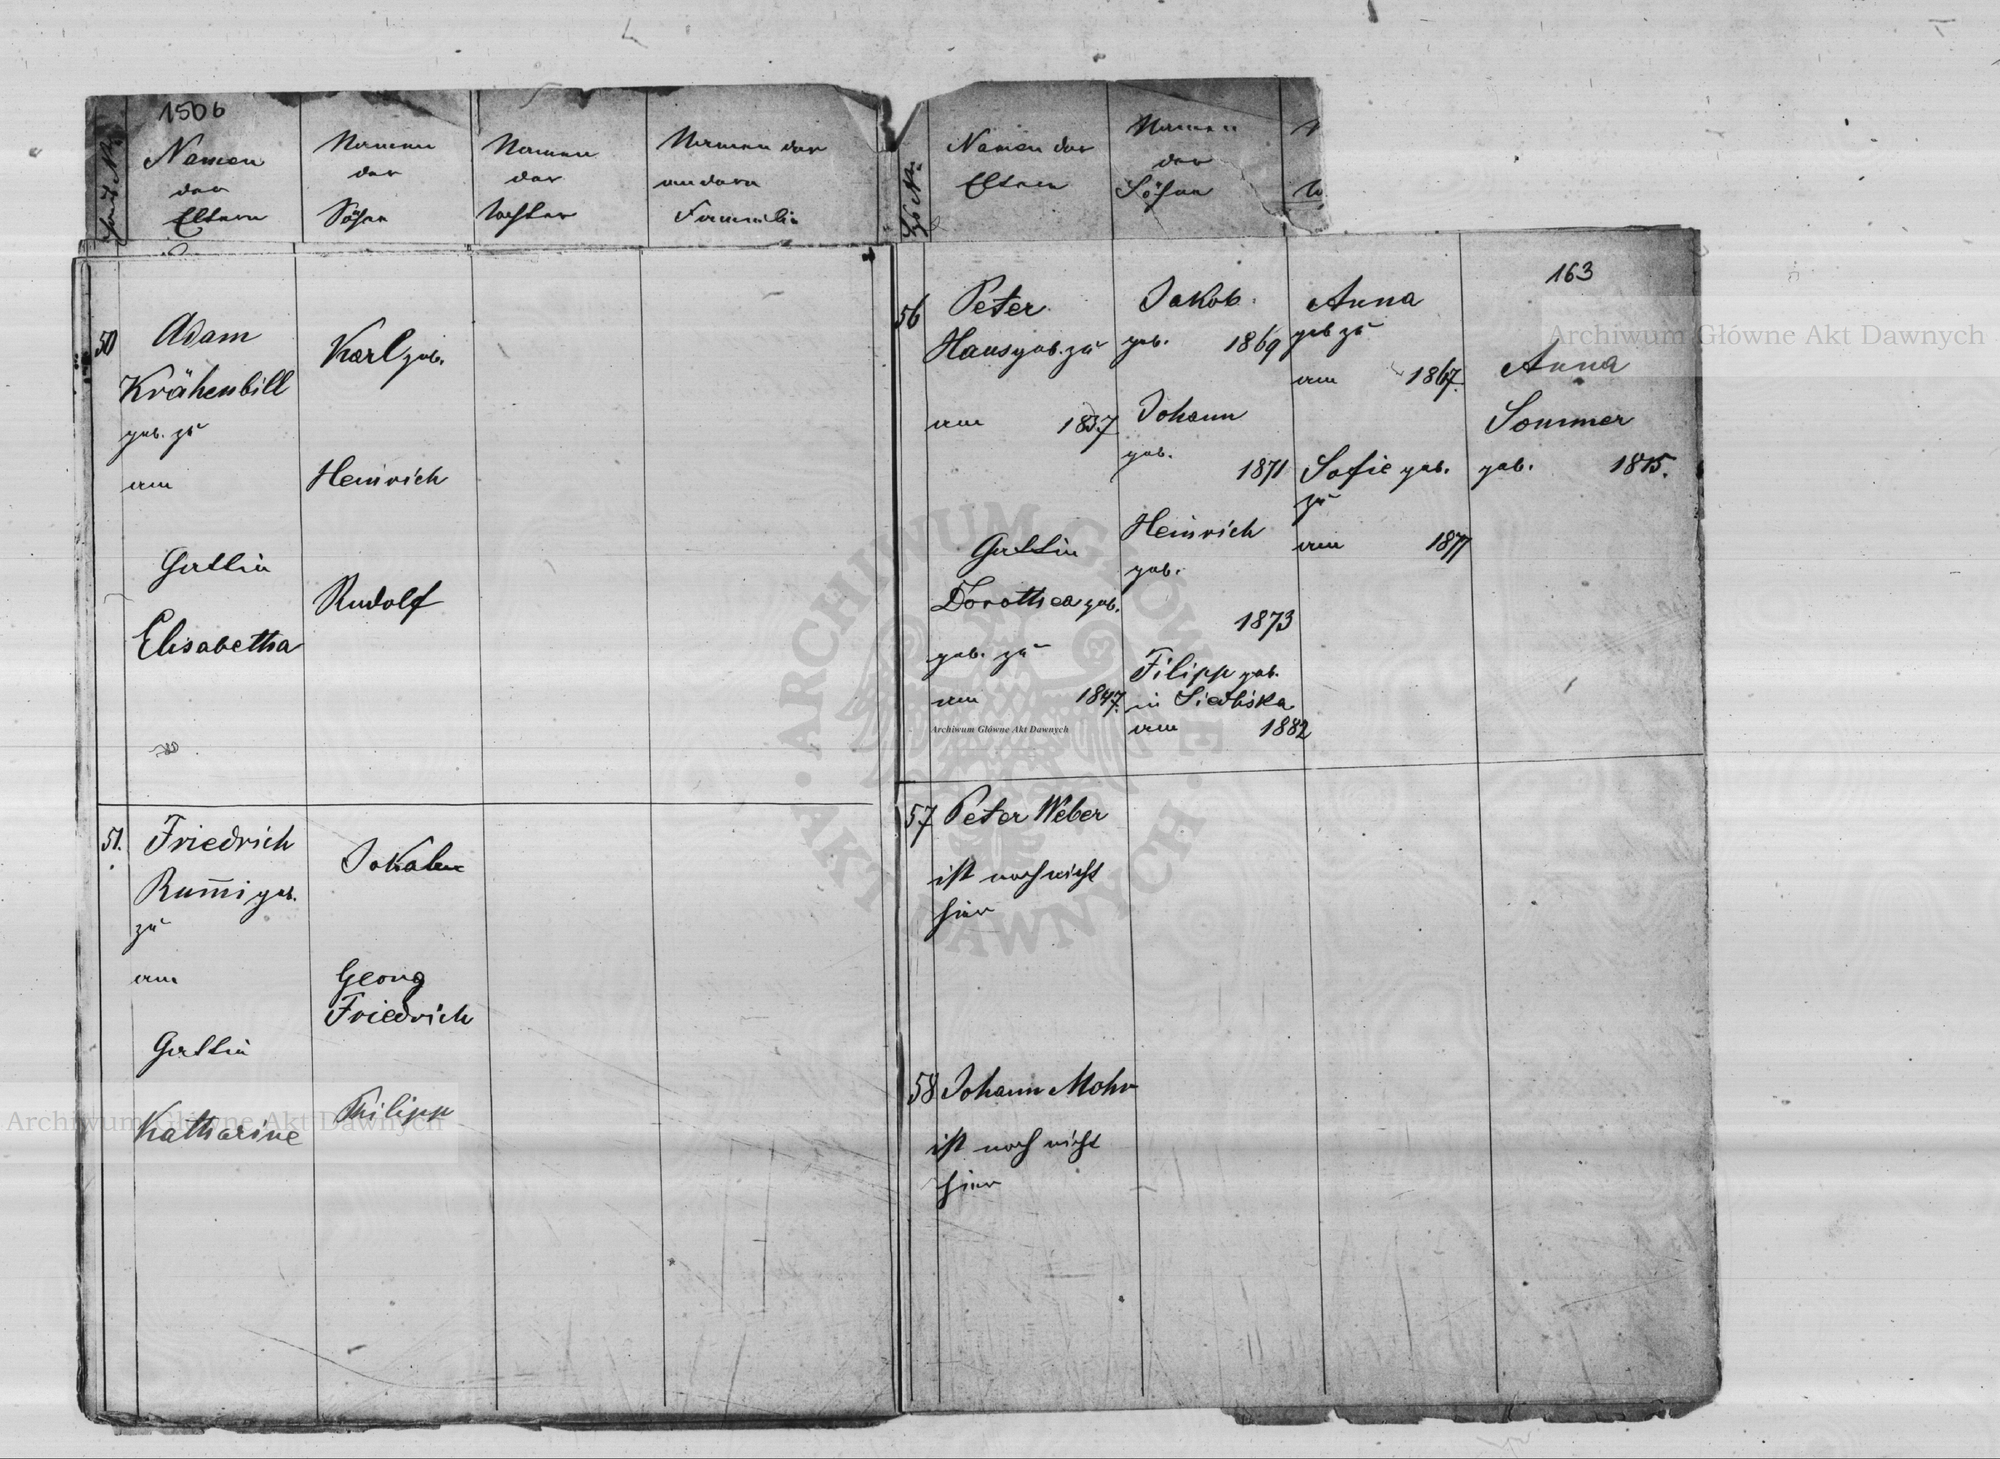 1506
Namen
der
Eltern
Namen
der
Söhne
Namen
der
Töchter
Namen der
andern
Familie
50
Adam
Krähenbill
geb. zu
am
Gattin
Elisabetha
Karl geb.
Heinrich
Rudolf
51.
Friedrich
Rum̅i geb.
zu
am
Gattin
Katharine
Georg
Friedrich
Philipp
Namen der
Eltern
Namen
der
Söhne
163
56
Peter
Haus geb. zu
am 1837
Gattin
Dorothea geb.
geb. zu
am 1847.
Jakob.
geb. 1869
Johann
geb.
1871
Heinrich
geb.
1873
Filipp geb.
in Siedliska
am 1882
Anna
geb zu
am 1867.
Sofie geb.
zu
am 1877
Anna
Sommer
geb. 1815.
57 Peter Weber
ist noch nicht
hier
58 Johann Mohr
ist noch nicht
hier
Archiwum Główne Akt Dawnych
Archiwum Główne Akt Dawnych
Archiwum Główne Akt Dawnych
ARCHIWUM GŁÓWNE · AKT DAWNYCH ·